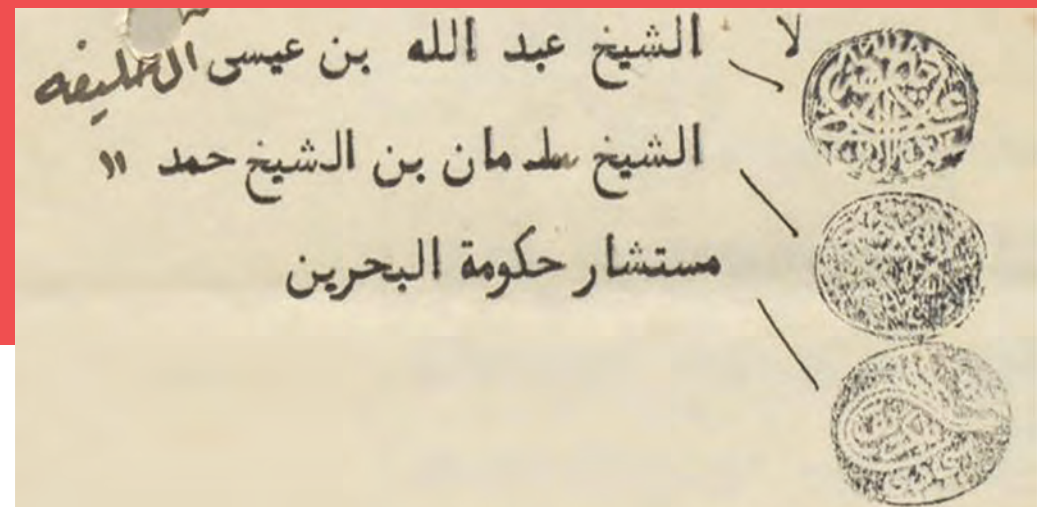 لا الشيخ عبد الله بن عيسى آل خليفه
الشيخ سلمان بن الشيخ حمد "
مستشار حكومة البحرين